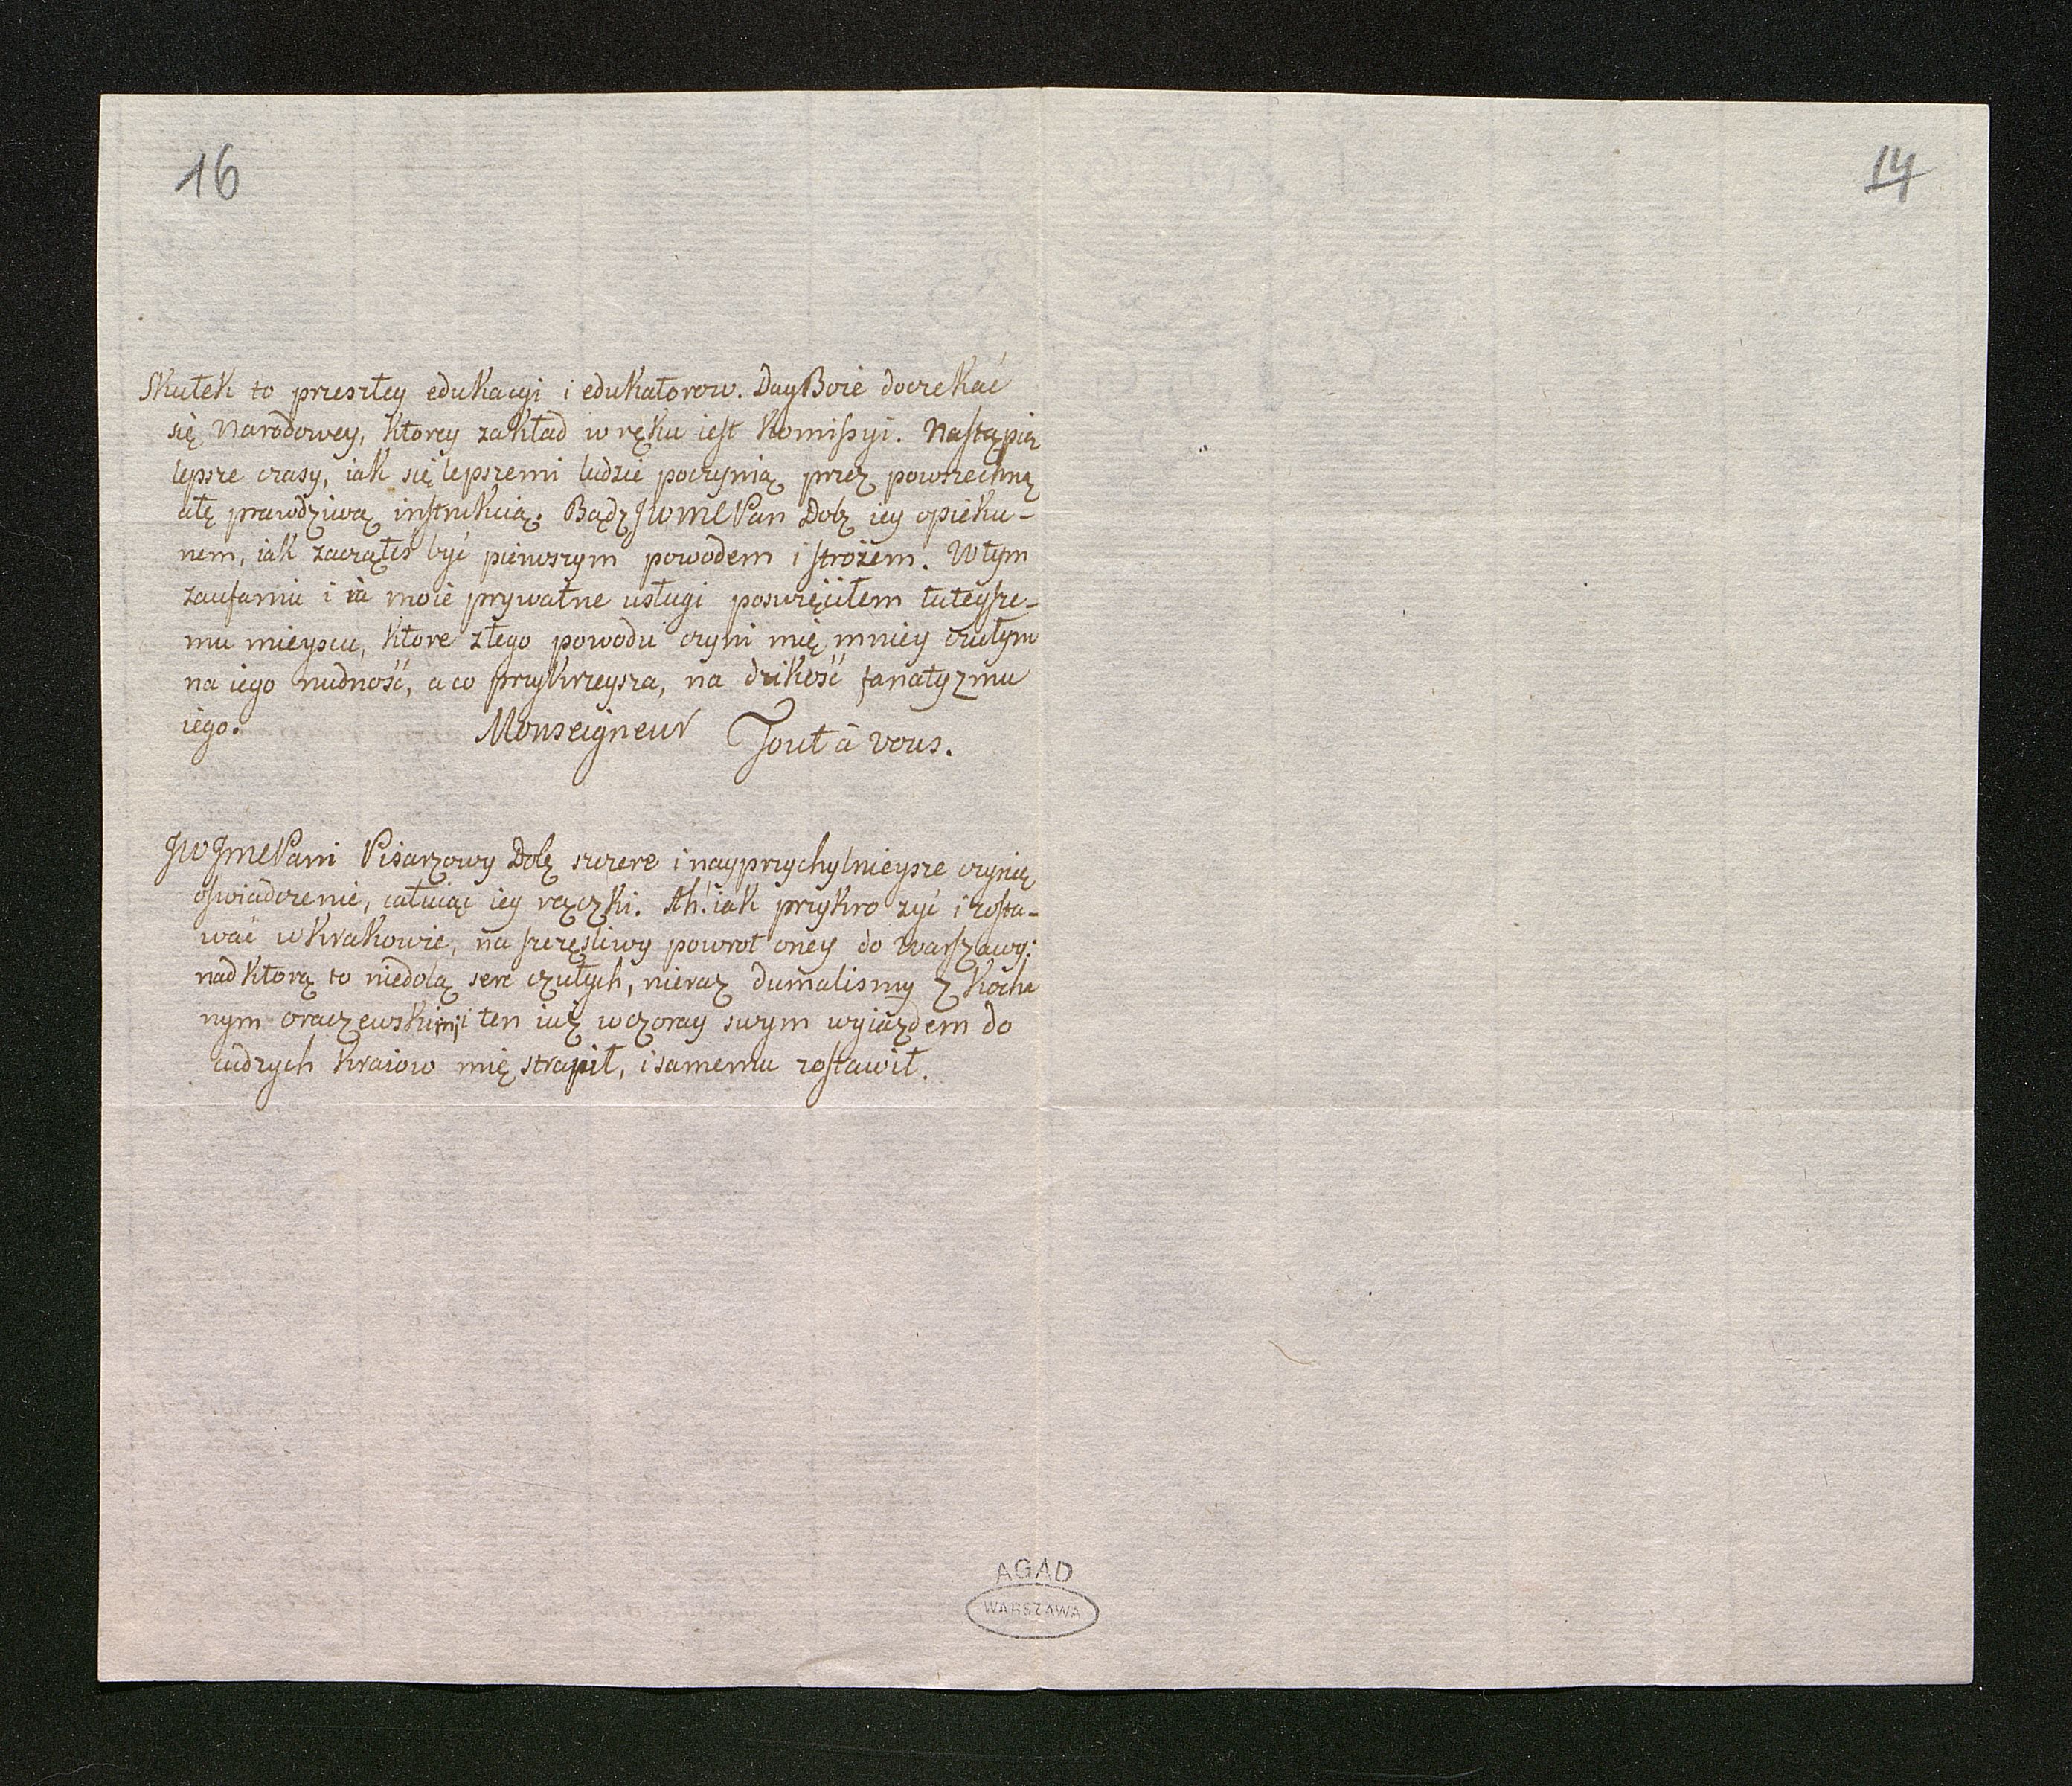 16
14
Skutek to przeszłey edukacyi i edukatorow. Day Boże doczekać
się Narodowey, ktorey zakład w ręku iest Komissyi. Nastąpią
lepsze czasy, iak się lepszemi ludzie poczynią przez powszechną
ałę prawdziwą instrukcią. Bądz JWMC Pan Dobz iey opieku-
nem, iak zacząłeś być pierwszym powodem i strożem. W tym
zaufaniu i ia moie prywatne usługi poswięciłem tuteysze-
mu mieyscu, ktore z tego powodu czyni mię mniey czułym
na iego nudność, a co przykrzeysza, na dzikość fanatyzmu
iego. Monseigneur Tout à vous.
JWJmc Pani Pisarzowy Dobz szczere i nayprzychylnieysze czynię
oswiadczenie, całuiąc iey rączki. Ah! iak przykro zyć i zosta-
wać w Krakowie, na szczęsliwy powrot oney do Warszawy:
nad ktorą to niedolą serc czułych, nieraz dumalismy z kocha
nym Oraczewskim; i ten iuz wczoray swym wyiazdem do
cudzych kraiow mię strapił, i samemu zostawił.
AGAD
WARSZAWA